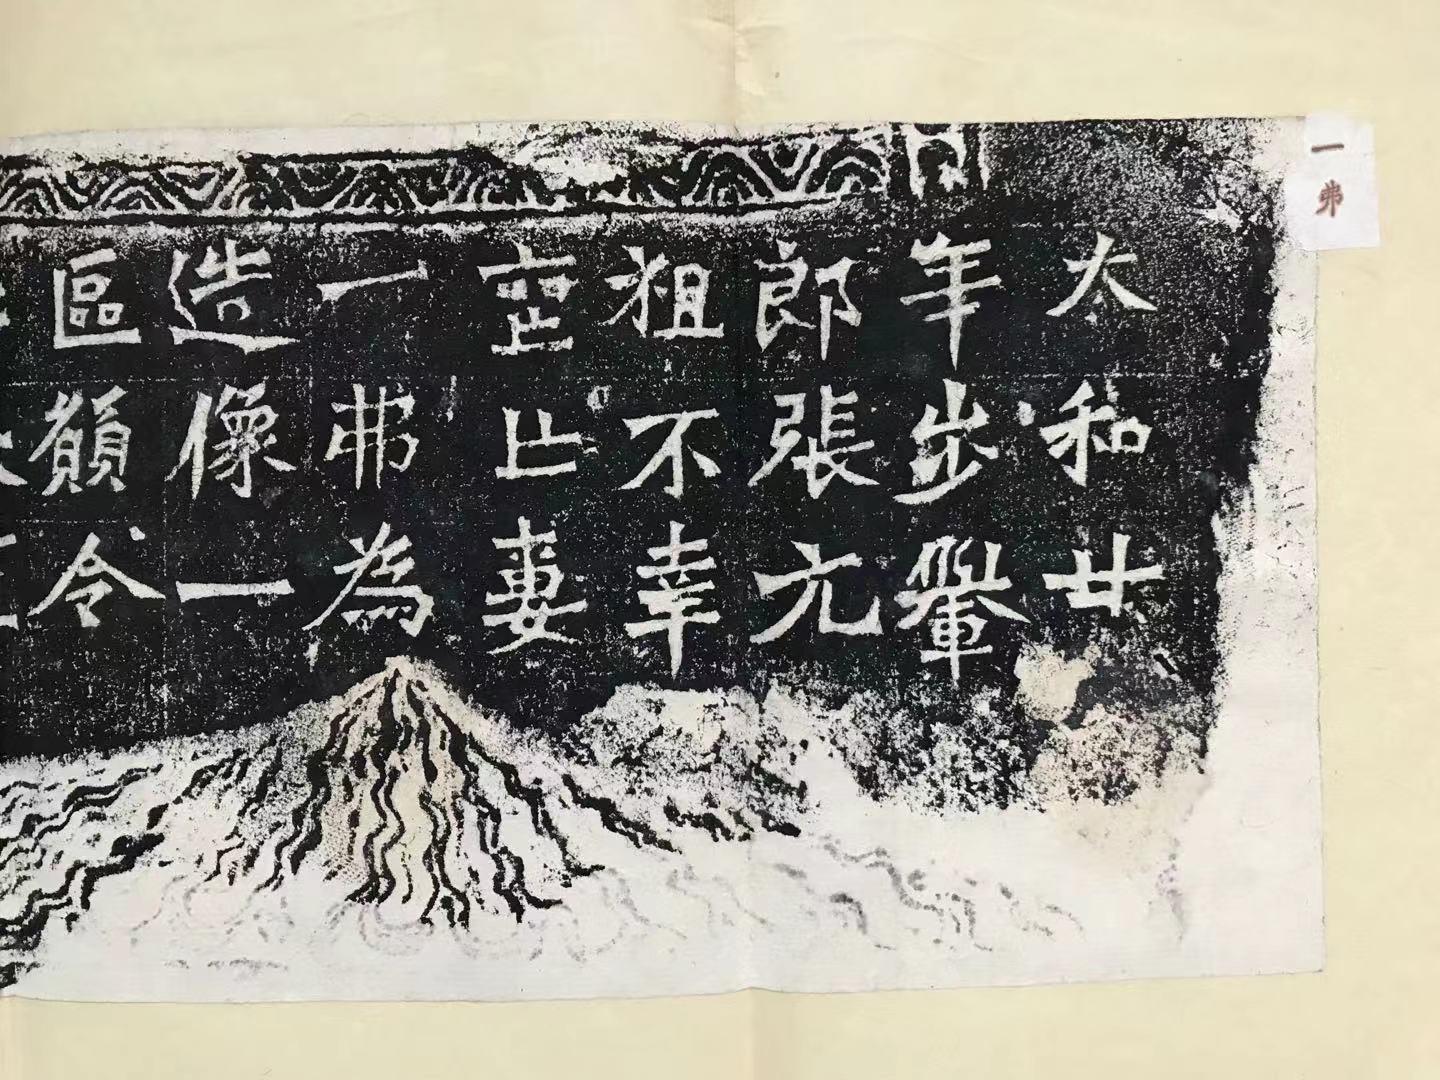 一弗
太和廿
年步轝
郎張元
祖不幸
喪亡妻
一弗為
造像一
區願令